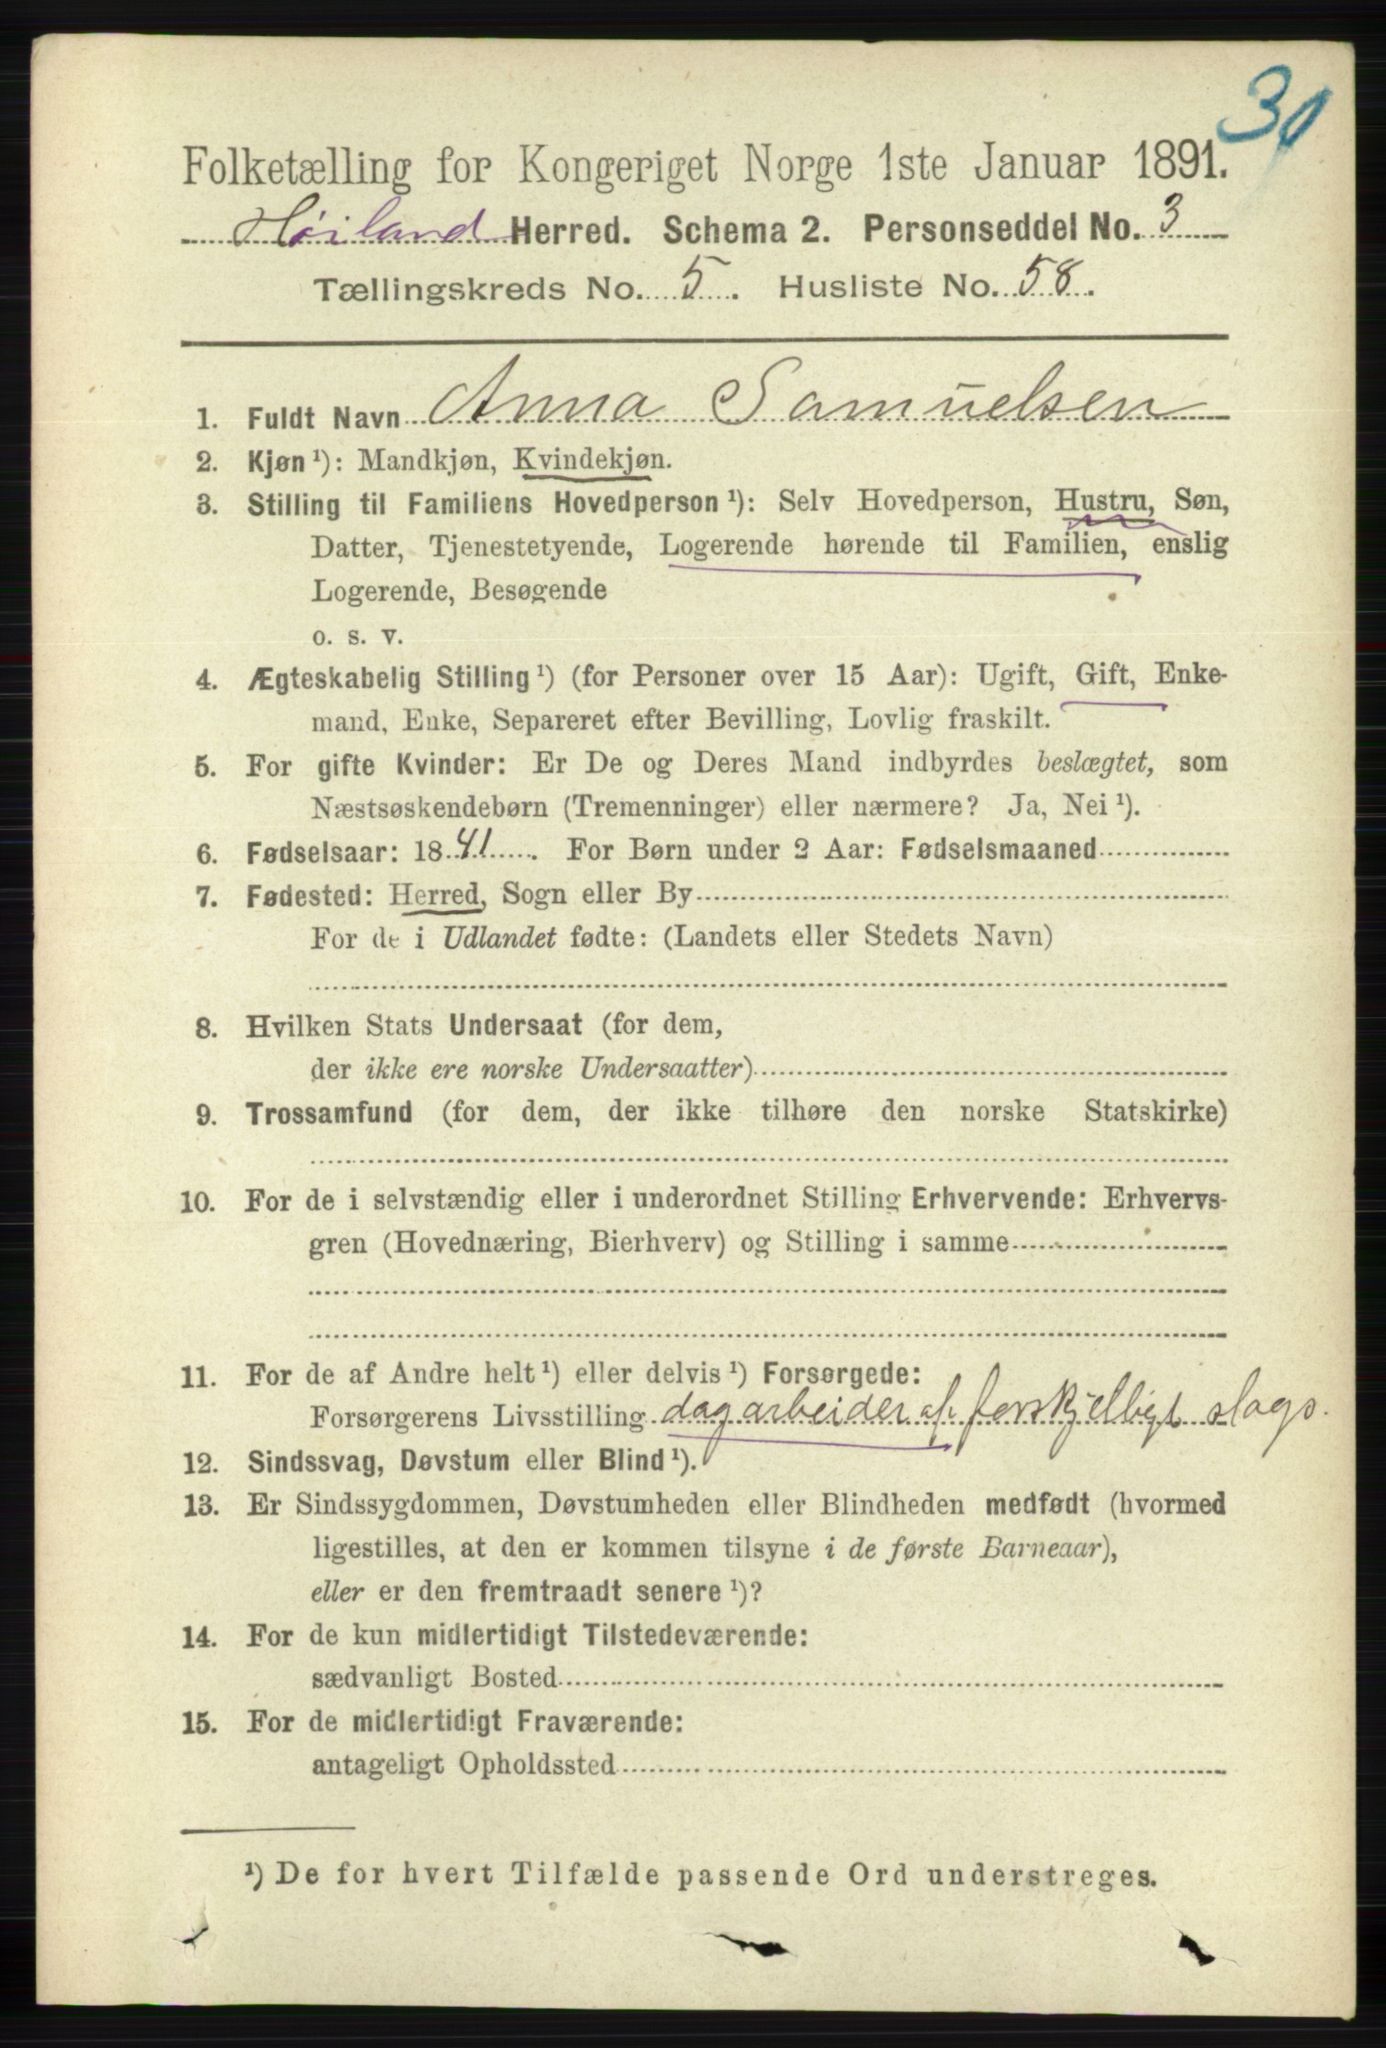 Folketælling for Kongeriget Norge 1ste Januar 1891.
Høiland Herred. Schema 2. Personseddel No. 3
Tællingskreds No. 5. Husliste No. 58.
1. Fuldt Navn Anna Samuelsen
2. Kjøn ¹): Mandkjøn, Kvindekjøn.
3. Stilling til Familiens Hovedperson ¹): Selv Hovedperson, Hustru, Søn,
Datter, Tjenestetyende, Logerende hørende til Familien, enslig
Logerende, Besøgende
o. s. v.
4. Ægteskabelig Stilling ¹) (for Personer over 15 Aar): Ugift, Gift, Enke-
mand, Enke, Separeret efter Bevilling, Lovlig fraskilt.
5. For gifte Kvinder: Er De og Deres Mand indbyrdes beslægtet, som
Næstsøskendebørn (Tremenninger) eller nærmere? Ja, Nei ¹).
6. Fødselsaar: 1841. For Børn under 2 Aar: Fødselsmaaned
7. Fødested: Herred, Sogn eller By
For de i Udlandet fødte: (Landets eller Stedets Navn)
8. Hvilken Stats Undersaat (for dem,
der ikke ere norske Undersaatter)
9. Trossamfund (for dem, der ikke tilhøre den norske Statskirke)
10. For de i selvstændig eller i underordnet Stilling Erhvervende: Erhvervs-
gren (Hovednæring, Bierhverv) og Stilling i samme
11. For de af Andre helt ¹) eller delvis ¹) Forsørgede:
Forsørgerens Livsstilling dagarbeider af forskjelligt slags.
12. Sindssvag, Døvstum eller Blind ¹).
13. Er Sindssygdommen, Døvstumheden eller Blindheden medfødt (hvormed
ligestilles, at den er kommen tilsyne i de første Barneaar),
eller er den fremtraadt senere ¹)?
14. For de kun midlertidigt Tilstedeværende:
sædvanligt Bosted
15. For de midlertidigt Fraværende:
antageligt Opholdssted
¹) De for hvert Tilfælde passende Ord understreges.